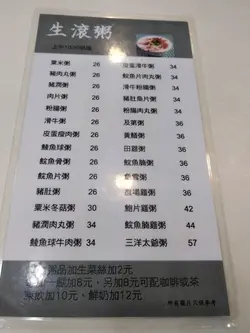 生滾粥
粟米粥 26
豬肉丸粥 26
豬潤粥 26
肉片粥 26
粉腸粥 26
滑牛粥 26
皮蛋瘦肉粥 26
鯪魚球粥 26
鯇魚骨粥 26
鯇魚片粥 26
豬肚粥 26
粟米冬菇粥 30
豬潤肉丸粥 34
鯪魚球牛肉粥 34
皮蛋滑牛粥 34
鯇魚片肉丸粥 34
滑牛粉腸粥 34
豬肚魚片粥 34
粉腸肉丸粥 34
及第粥 36
黃鱔粥 36
田雞粥 36
鯇魚腩粥 36
鮑片雞粥 42
鯇魚腩雞粥 44
三洋太爺粥 57
粥品加生菜絲加2元
加8元，另加8元可配咖啡或茶
凍飲加10元，鮮奶加12元
所有圖片只供參考